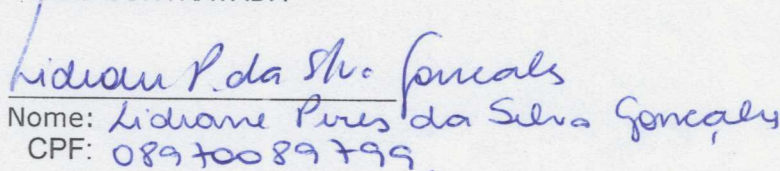 Lidiane P. da Silva Gonçalves
Nome: Lidiane Pires da Silva Gonçalves
CPF: 08970089799